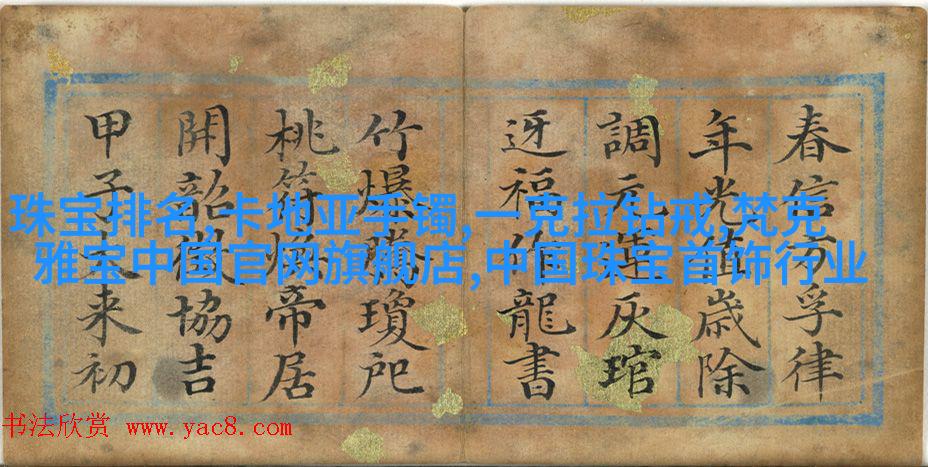 春信方孚律
年光值歳除
調元灰琯
迓福龍書
竹爆瓊
桃符煥帝居
開韶徵協吉
甲子来初
珠宝排名,卡地亚手镯,一克拉钻戒,梵克
雅宝中国官网旗舰店,中国珠宝首饰行业
书法欣赏 www.yac8.com